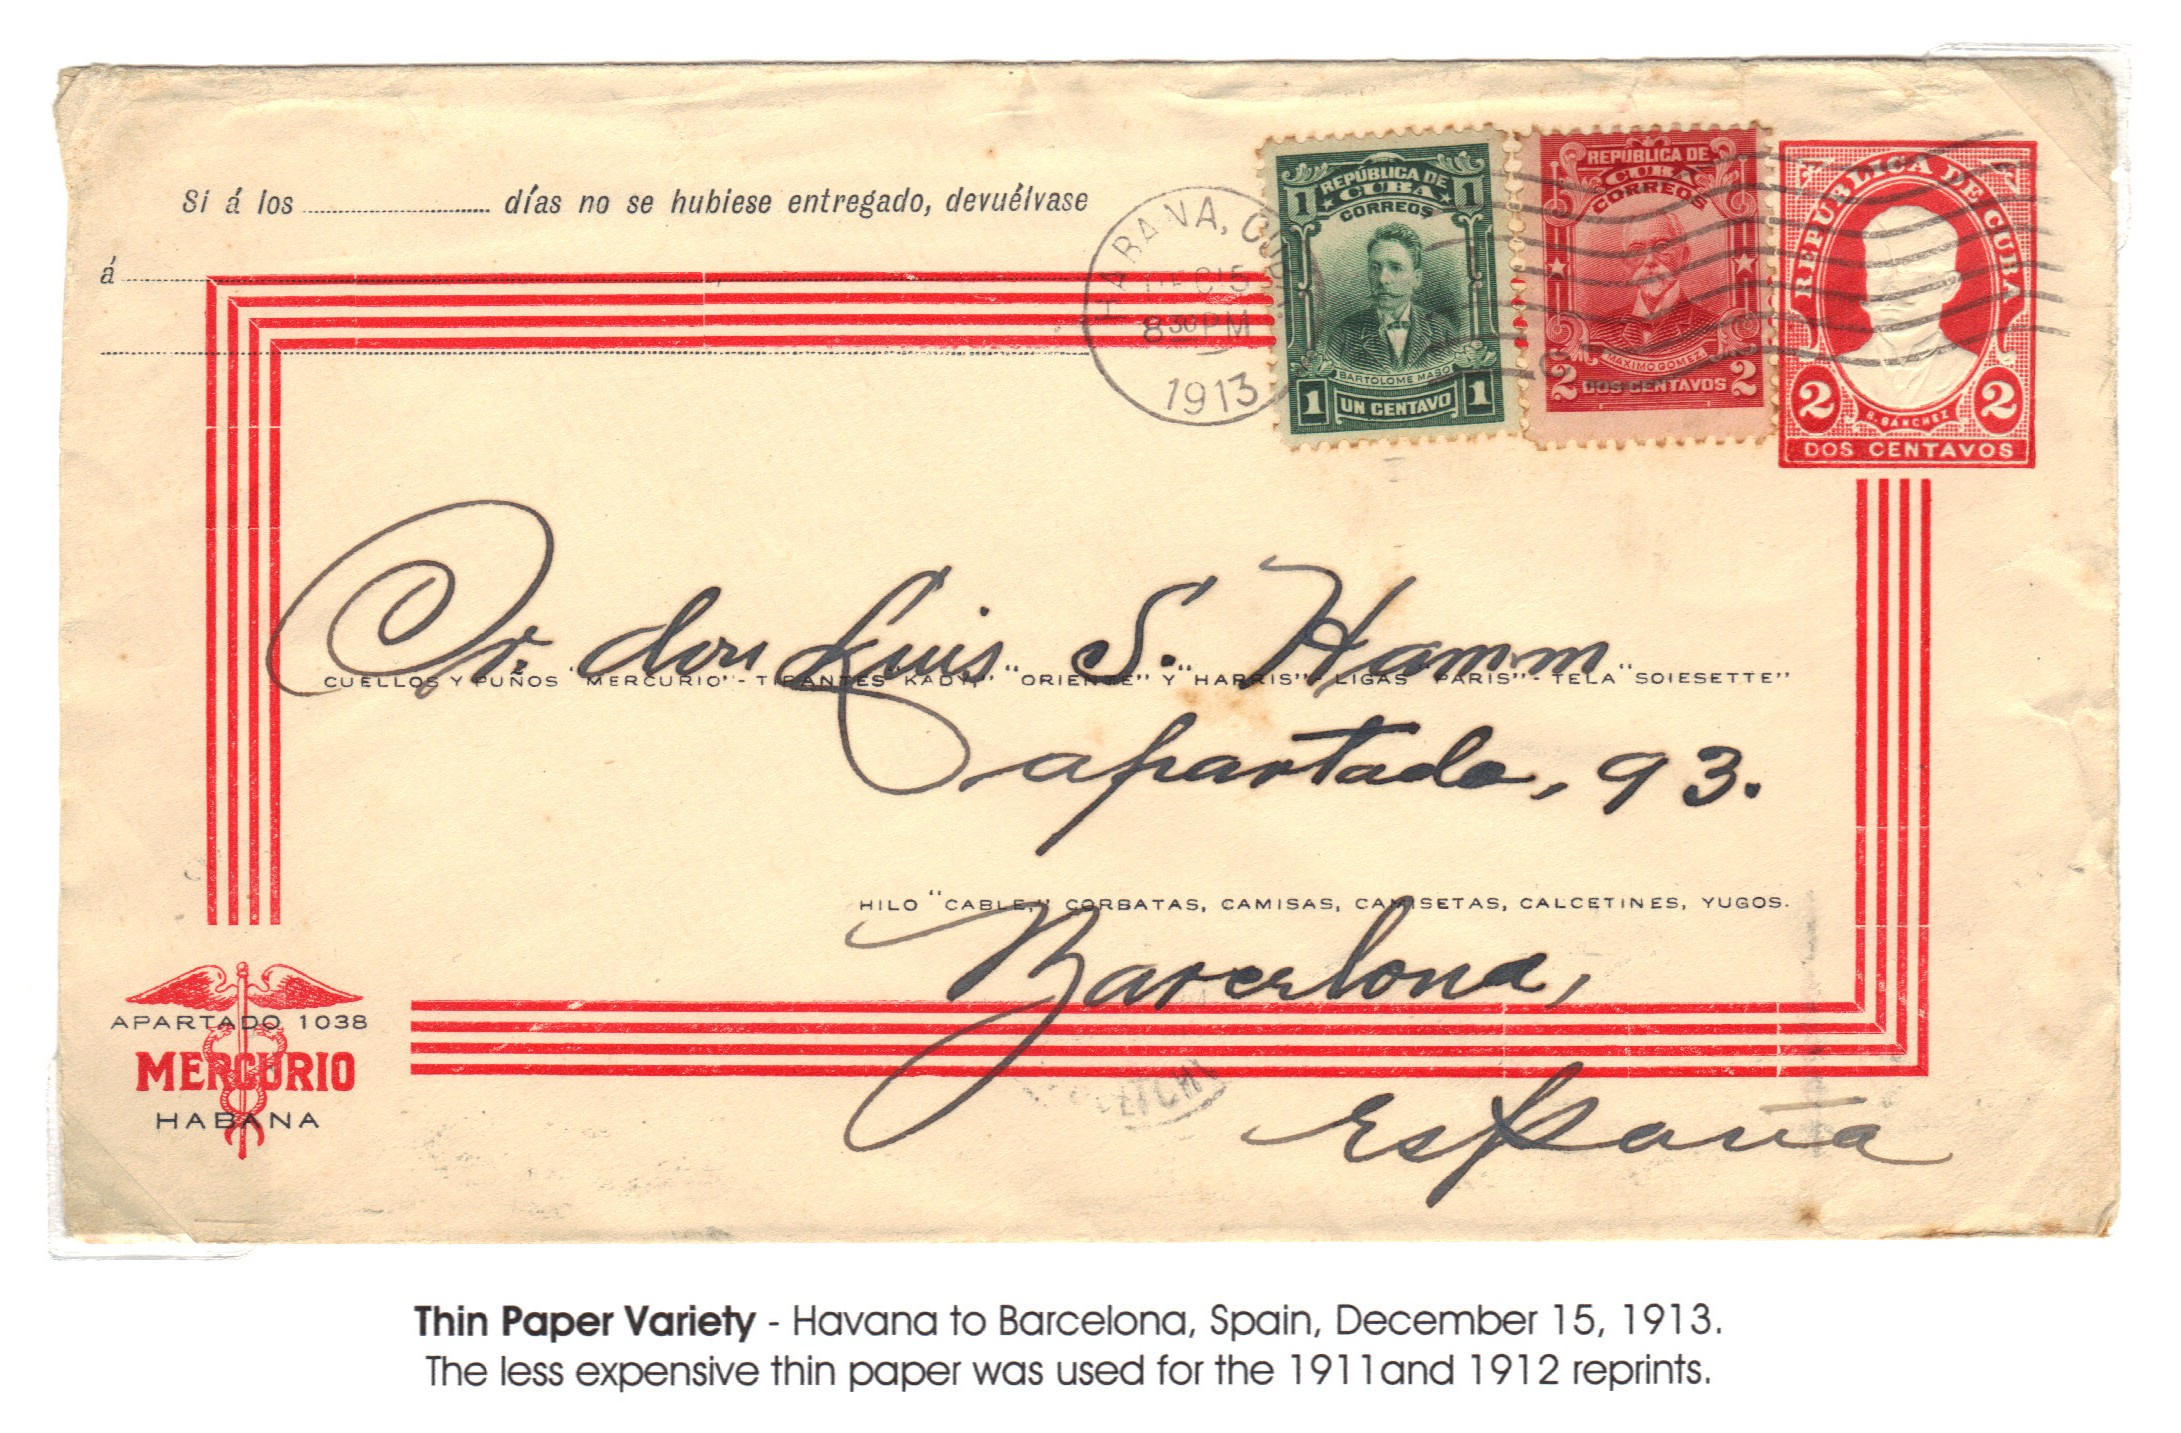 Si á los ........ días no se hubiese entregado, devuélvase
á
HABANA, CUBA
DEC 15
8 30 PM
1913
REPÚBLICA DE
CUBA
CORREOS
1 1
BARTOLOME MASO
1 UN CENTAVO 1
REPÚBLICA DE
CUBA
CORREOS
MAXIMO GOMEZ
2 DOS CENTAVOS 2
REPUBLICA DE CUBA
2 2
S. SANCHEZ
DOS CENTAVOS
Sr. don Luis S. Hamm
CUELLOS Y PUÑOS "MERCURIO" - TIRANTES "KADY," "ORIENTE" Y "HARRIS" - LIGAS "PARIS" - TELA "SOIESETTE"
apartado, 93.
HILO "CABLE," CORBATAS, CAMISAS, CAMISETAS, CALCETINES, YUGOS.
Barcelona,
España
APARTADO 1038
MERCURIO
HABANA
Thin Paper Variety - Havana to Barcelona, Spain, December 15, 1913.
The less expensive thin paper was used for the 1911and 1912 reprints.